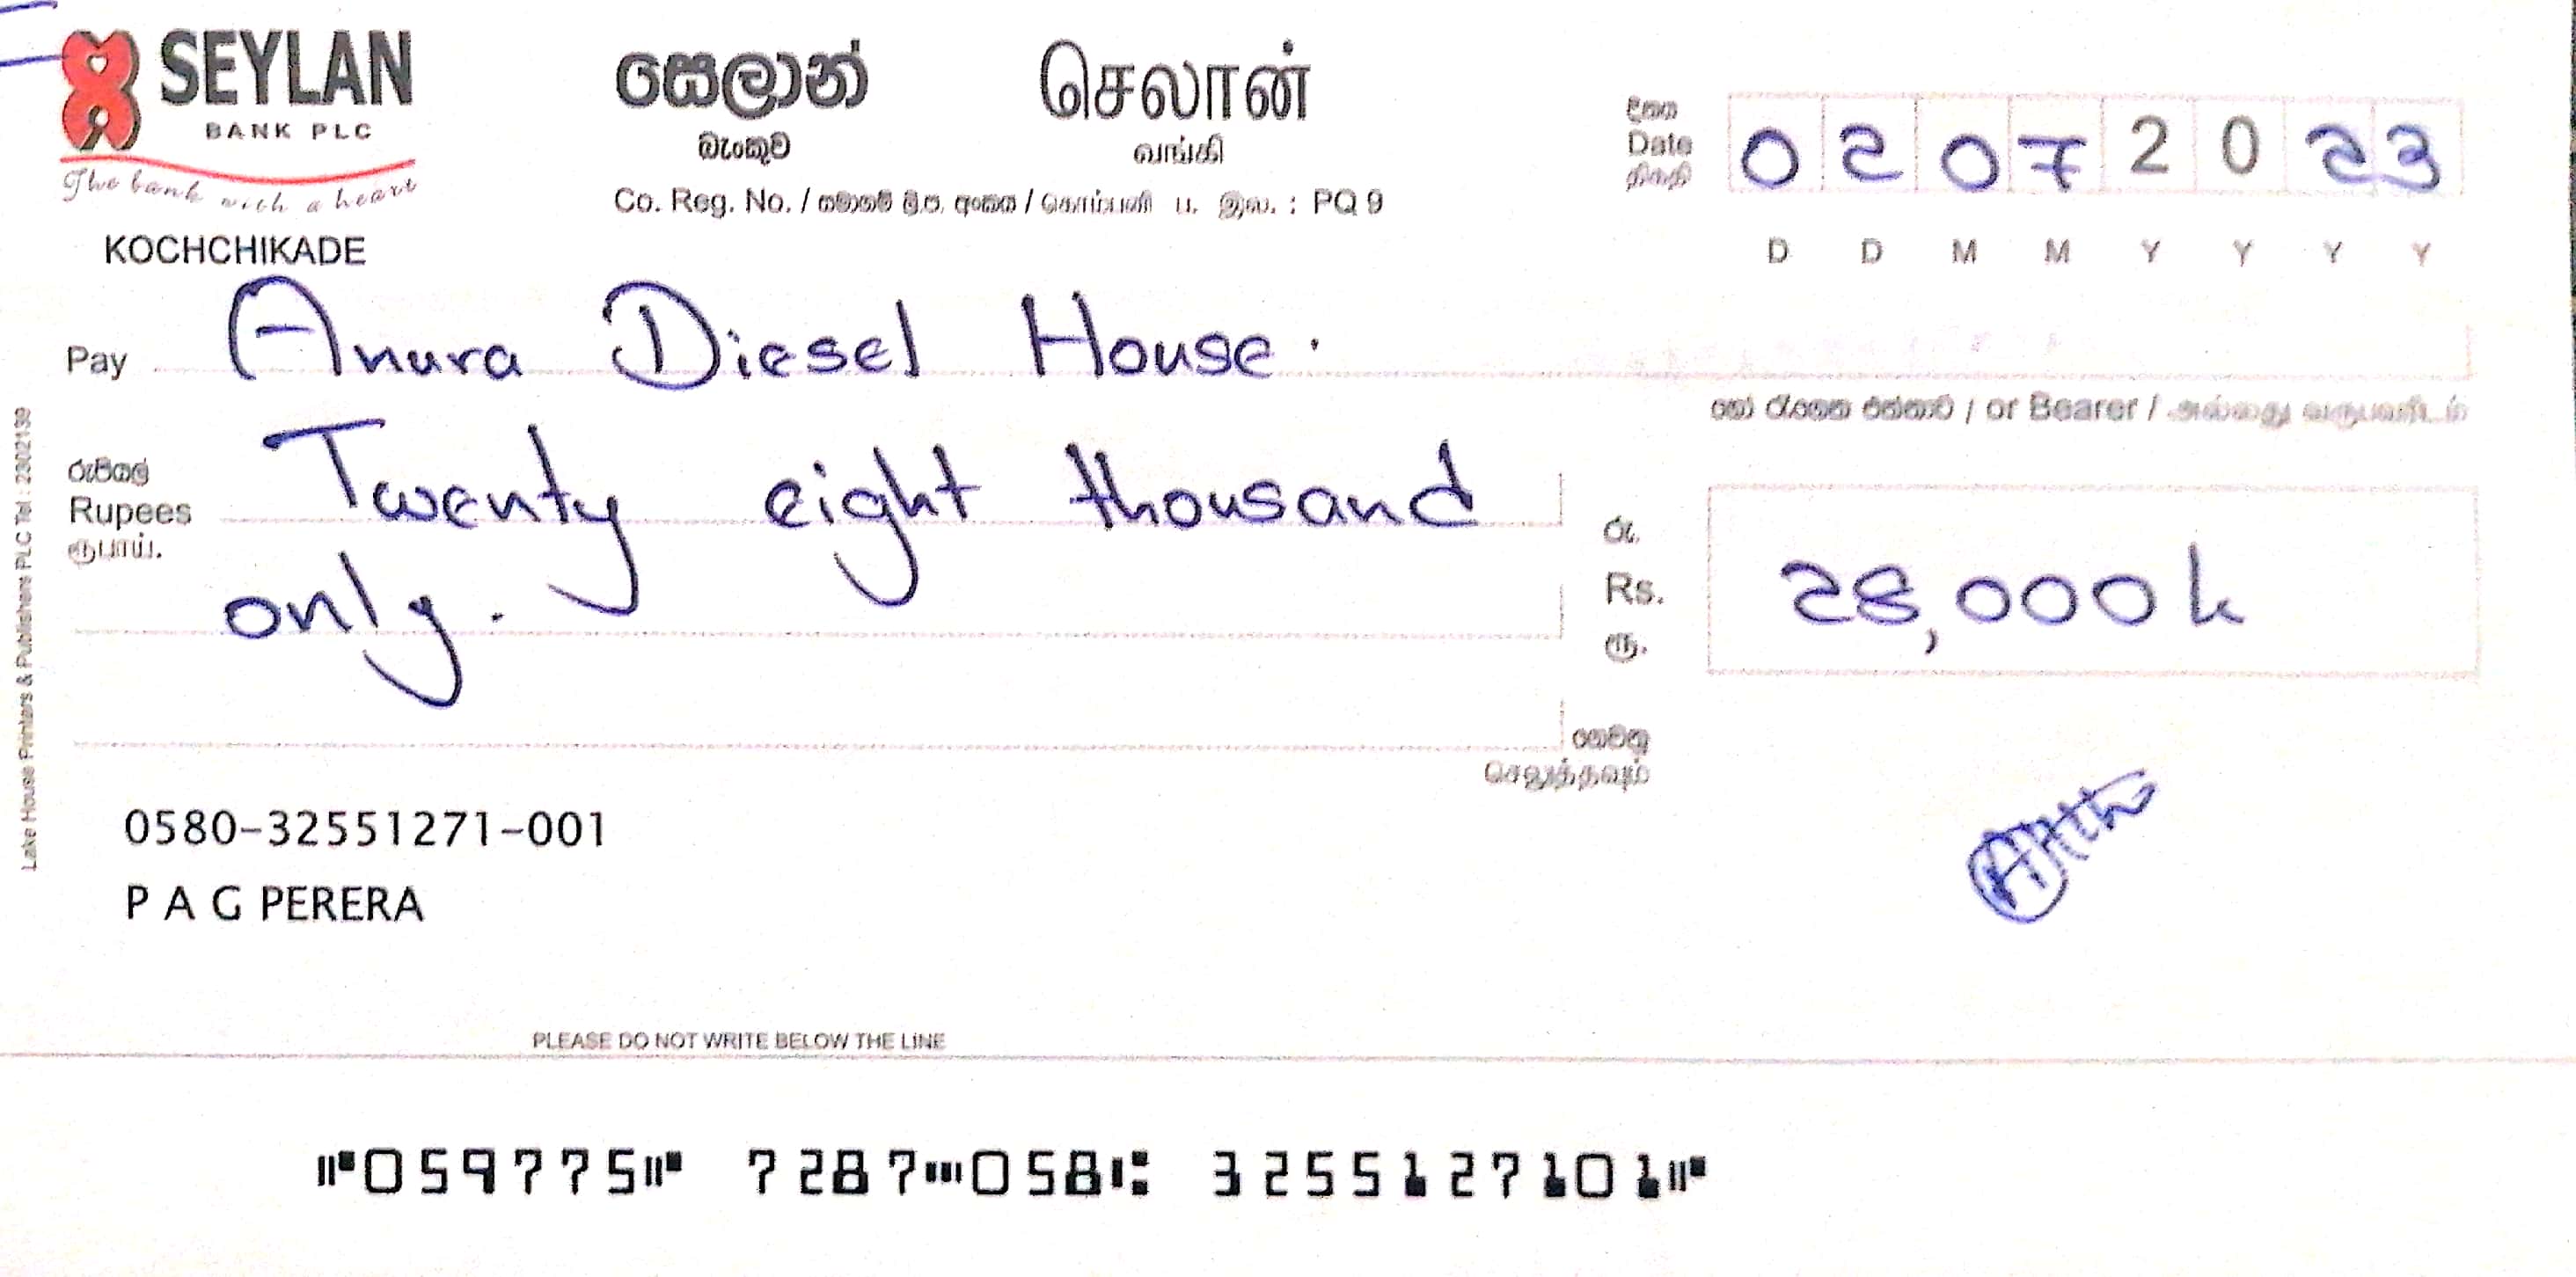 SEYLAN
BANK PLC
The bank with a heart
KOCHCHIKADE
සෙලාන්
බැංකුව
செலான்
வங்கி
Co. Reg. No. / සමාගම් ලි.ප. අංකය / கம்பனி ப. இல. : PQ 9
දිනය
Date
திகதி
0 2 0 7 2 0 2 3
D D M M Y Y Y Y
Pay Anura Diesel House.
හෝ රැගෙන එන්නාට / or Bearer / அல்லது வருபவரிடம்
රුපියල්
Rupees
ரூபாய்.
Twenty eight thousand
only.
රු.
Rs.
ரூ.
28,000
ගෙවනු
செலுத்தவும்
0580-32551271-001
P A G PERERA
Lake House Printers & Publishers PLC Tel : 2302139
PLEASE DO NOT WRITE BELOW THE LINE
⑈059775⑈ 7287⑉058⑆ 325512710 1⑈